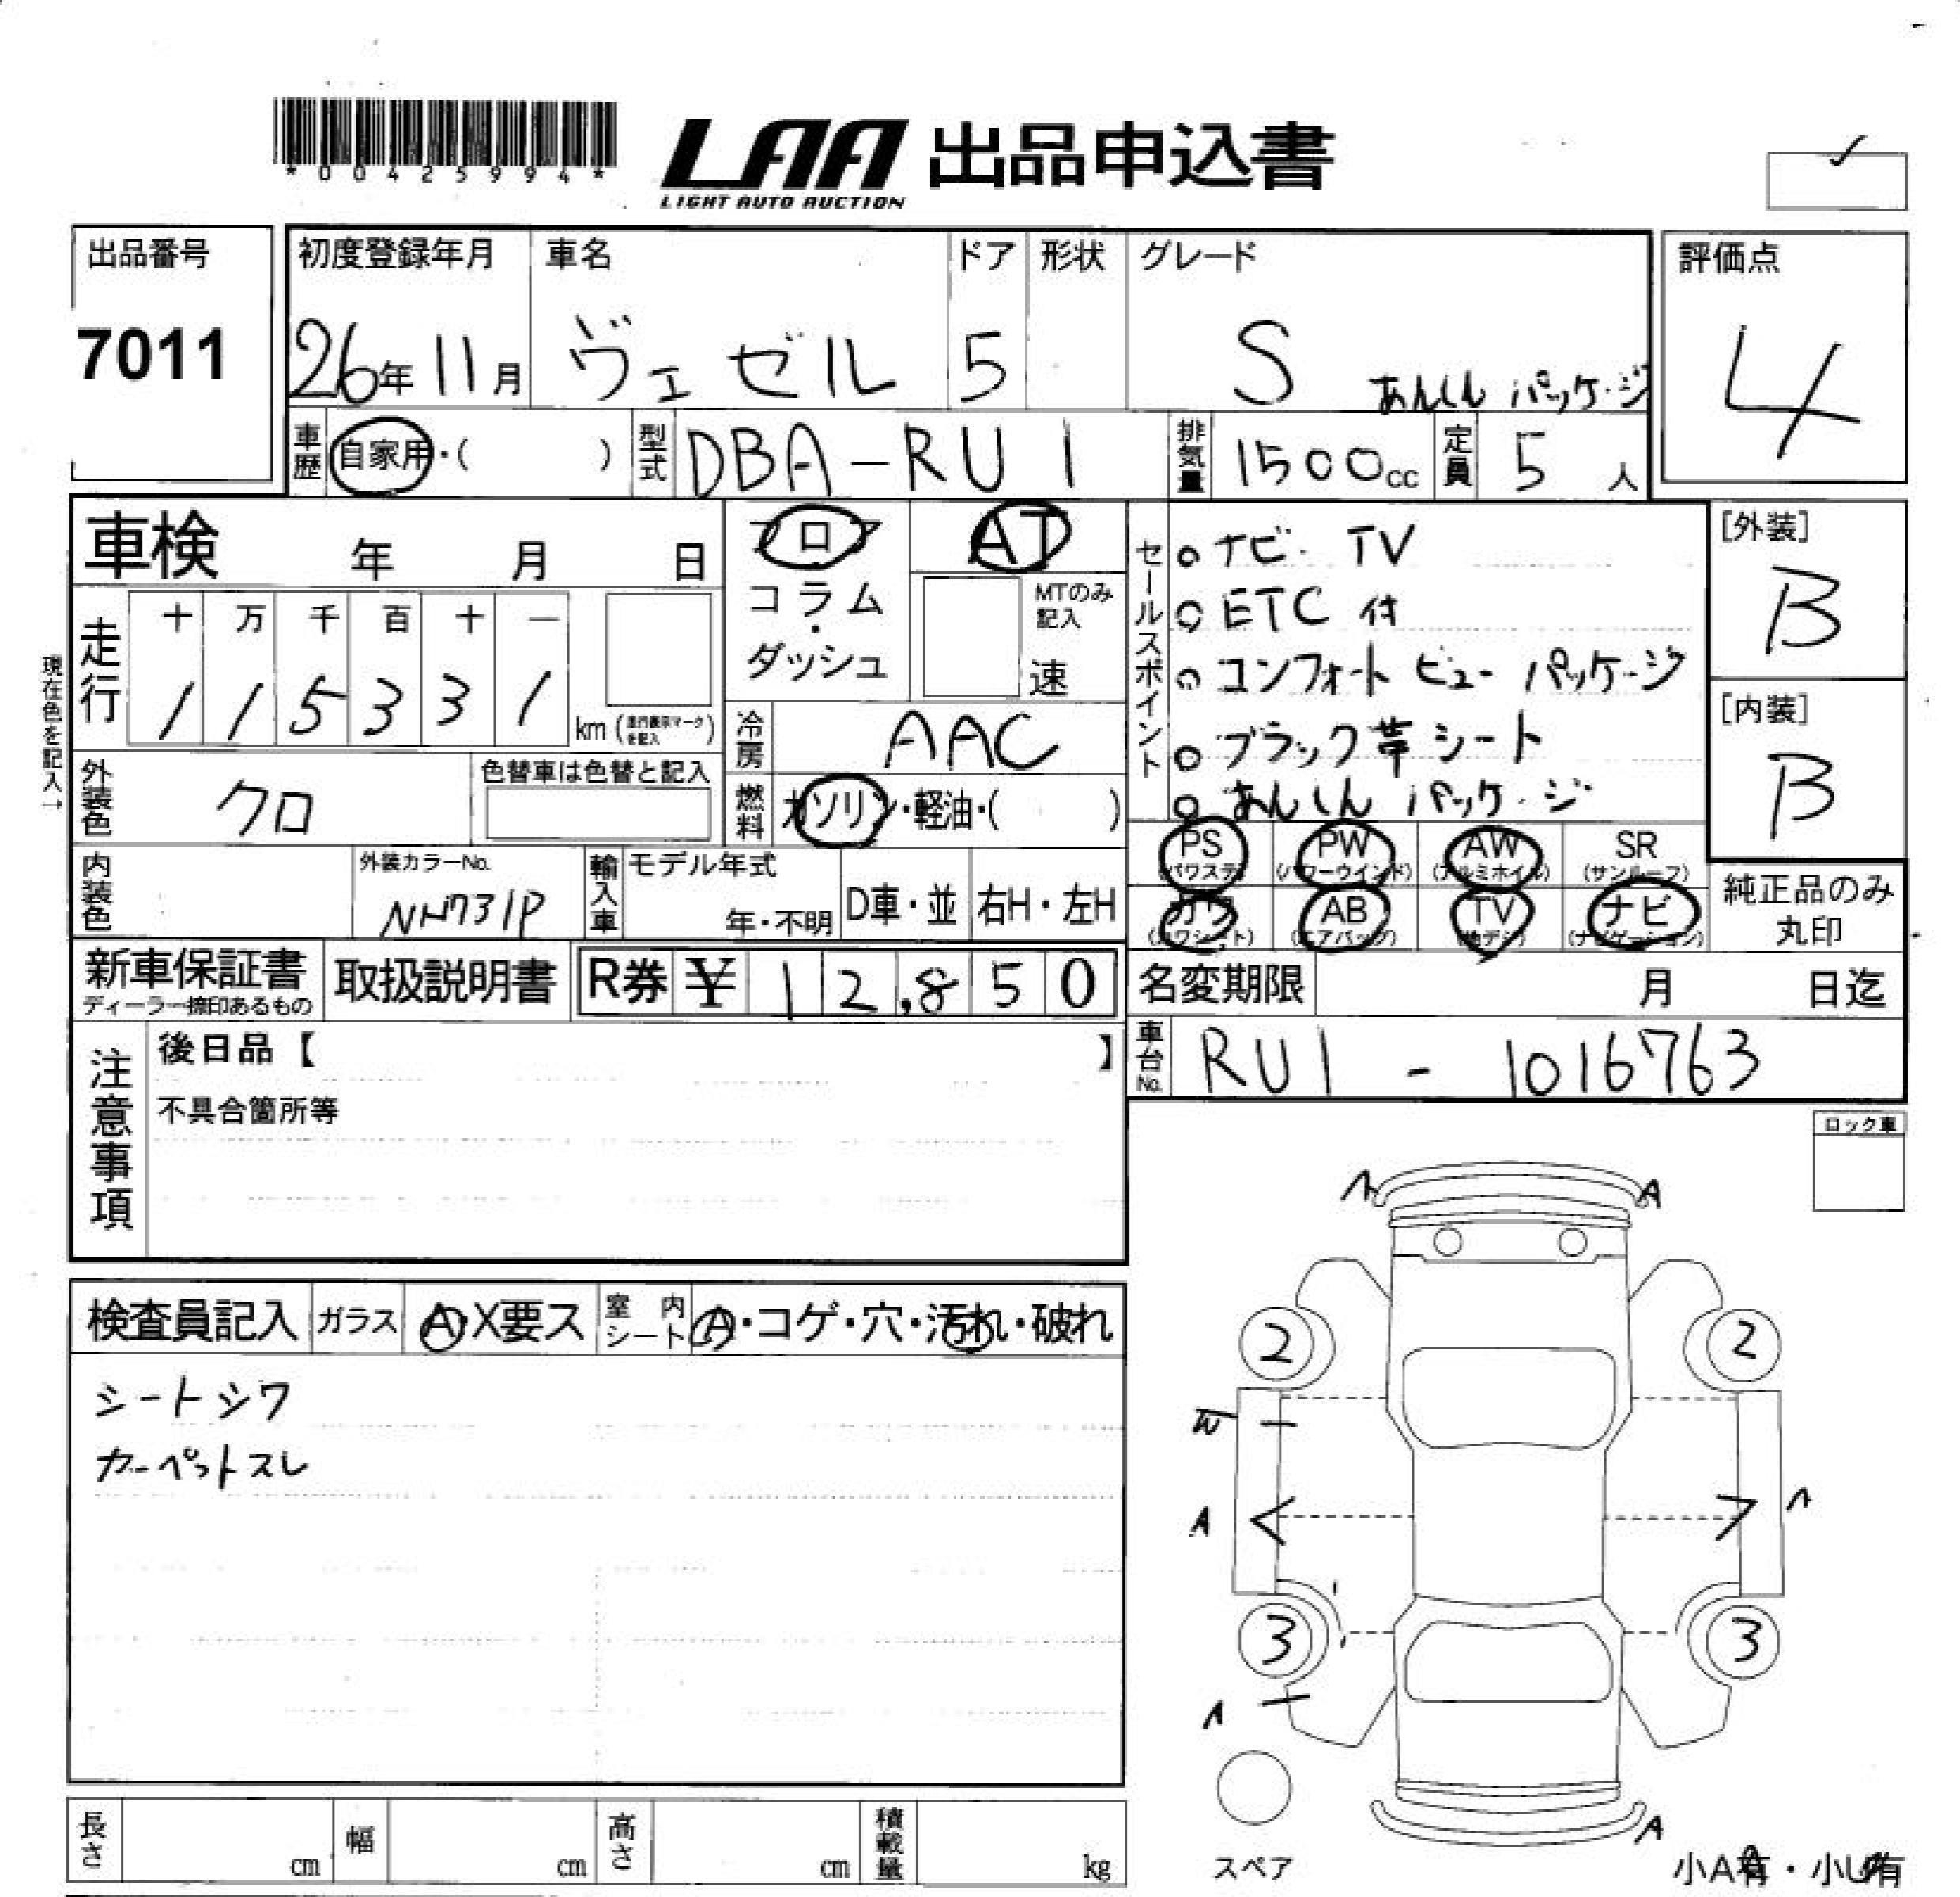 *00425994*
LAA 出品申込書
LIGHT AUTO AUCTION
出品番号
7011
初度登録年月
26年11月
車名
ヴェゼル
ドア
5
形状
グレード
S あんしんパッケージ
評価点
4
車歴
自家用・( )
型式
DBA-RU1
排気量
1500cc
定員
5人
車検 年 月 日
フロア
コラム
・
ダッシュ
AT
MTのみ
記入
速
セールスポイント
○ナビ・TV
○ETC付
○コンフォートビューパッケージ
○ブラック革シート
○あんしんパッケージ
[外装]
B
[内装]
B
現在色を記入→
走行
十 万 千 百 十 一
1 1 5 3 3 1
km (走行表示マークを記入)
冷房
AAC
外装色
クロ
色替車は色替と記入
燃料
ガソリン・軽油・( )
PS (パワステ)
PW (パワーウインド)
AW (アルミホイル)
SR (サンルーフ)
カワ (カワシート)
AB (エアバッグ)
TV (地デジ)
ナビ (ナビゲーション)
純正品のみ
丸印
内装色
外装カラーNo.
NH731P
輸入車
モデル年式
年・不明
D車・並
右H・左H
新車保証書
ディーラー捺印あるもの
取扱説明書
R券 ¥ 12,850
名変期限 月 日迄
車台No.
RU1 - 1016763
注意事項
後日品【 】
不具合箇所等
ロック車
検査員記入
ガラス
A・X要ス
室内シート
A・コゲ・穴・汚れ・破れ
シートシワ
カーペットスレ
A A
2 2
W
A A
3 3
A
A
スペア
小A有・小U有
長さ cm
幅 cm
高さ cm
積載量 kg